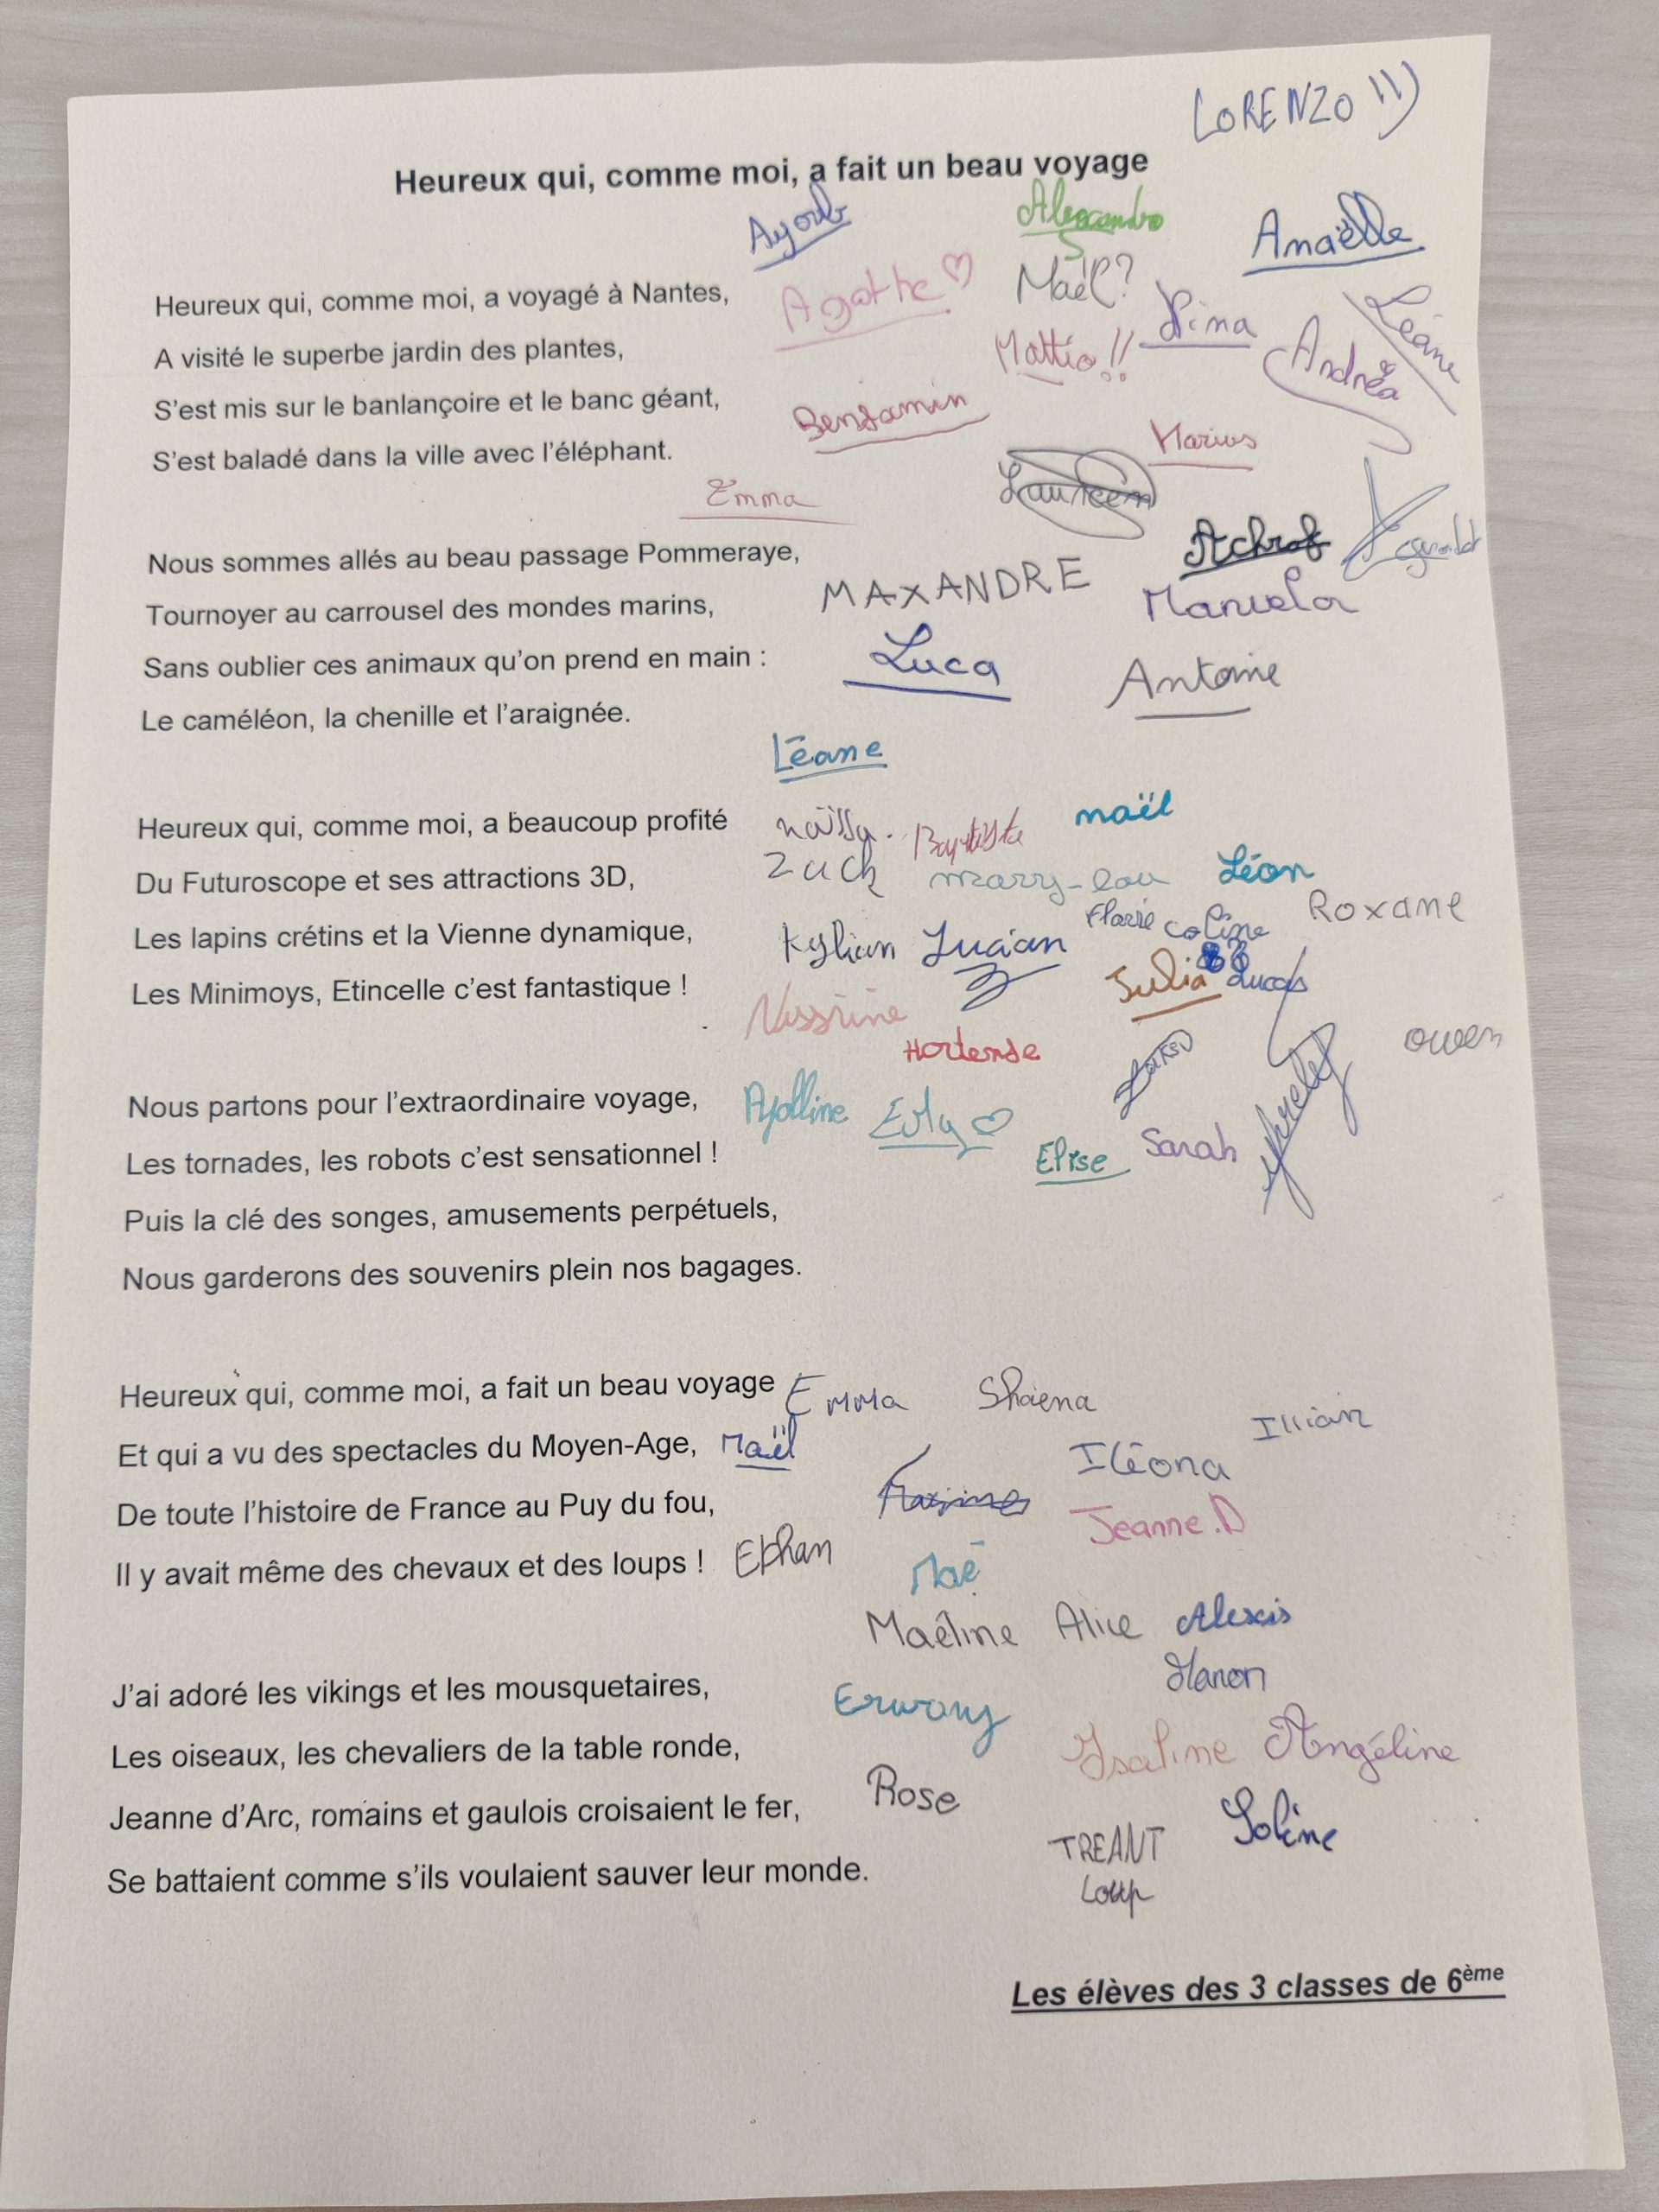 LORENZO !!)
Heureux qui, comme moi, a fait un beau voyage
Ayoub
Alessandro
Anaëlle
Heureux qui, comme moi, a voyagé à Nantes,
Agathe
Maël?
Nina
Léane
A visité le superbe jardin des plantes,
Mattéo!!
Andréa
S'est mis sur le banlançoire et le banc géant,
Benjamin
Marius
S'est baladé dans la ville avec l'éléphant.
Emma
Achraf
Nous sommes allés au beau passage Pommeraye,
MAXANDRE
Tournoyer au carrousel des mondes marins,
Sans oublier ces animaux qu'on prend en main :
Luca
Antoine
Le caméléon, la chenille et l'araignée.
Léane
Heureux qui, comme moi, a beaucoup profité
naïssa.
Baptiste
maël
Du Futuroscope et ses attractions 3D,
Zack
marry-lou
Léon
Roxane
Les lapins crétins et la Vienne dynamique,
Kylian
Lucian
Flavie
Coline
Les Minimoys, Etincelle c'est fantastique !
Julia
Lucas
Nissrine
Hortense
owen
Nous partons pour l'extraordinaire voyage,
Apolline
Les tornades, les robots c'est sensationnel !
Elise
Sarah
Puis la clé des songes, amusements perpétuels,
Nous garderons des souvenirs plein nos bagages.
Heureux qui, comme moi, a fait un beau voyage
Emma
Shaena
Illian
Et qui a vu des spectacles du Moyen-Age,
Maël
Iléona
De toute l'histoire de France au Puy du fou,
Maxime
Jeanne.D
Il y avait même des chevaux et des loups !
Ethan
Maé
Maëline
Alice
Alexis
Manon
J'ai adoré les vikings et les mousquetaires,
Erwany
Les oiseaux, les chevaliers de la table ronde,
Isaline
Angéline
Jeanne d'Arc, romains et gaulois croisaient le fer,
Rose
Solène
Se battaient comme s'ils voulaient sauver leur monde.
TREANT
Loup
Les élèves des 3 classes de 6ème